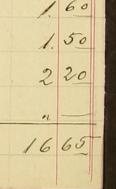 1. 60
1. 50
2 20
" —
16 65